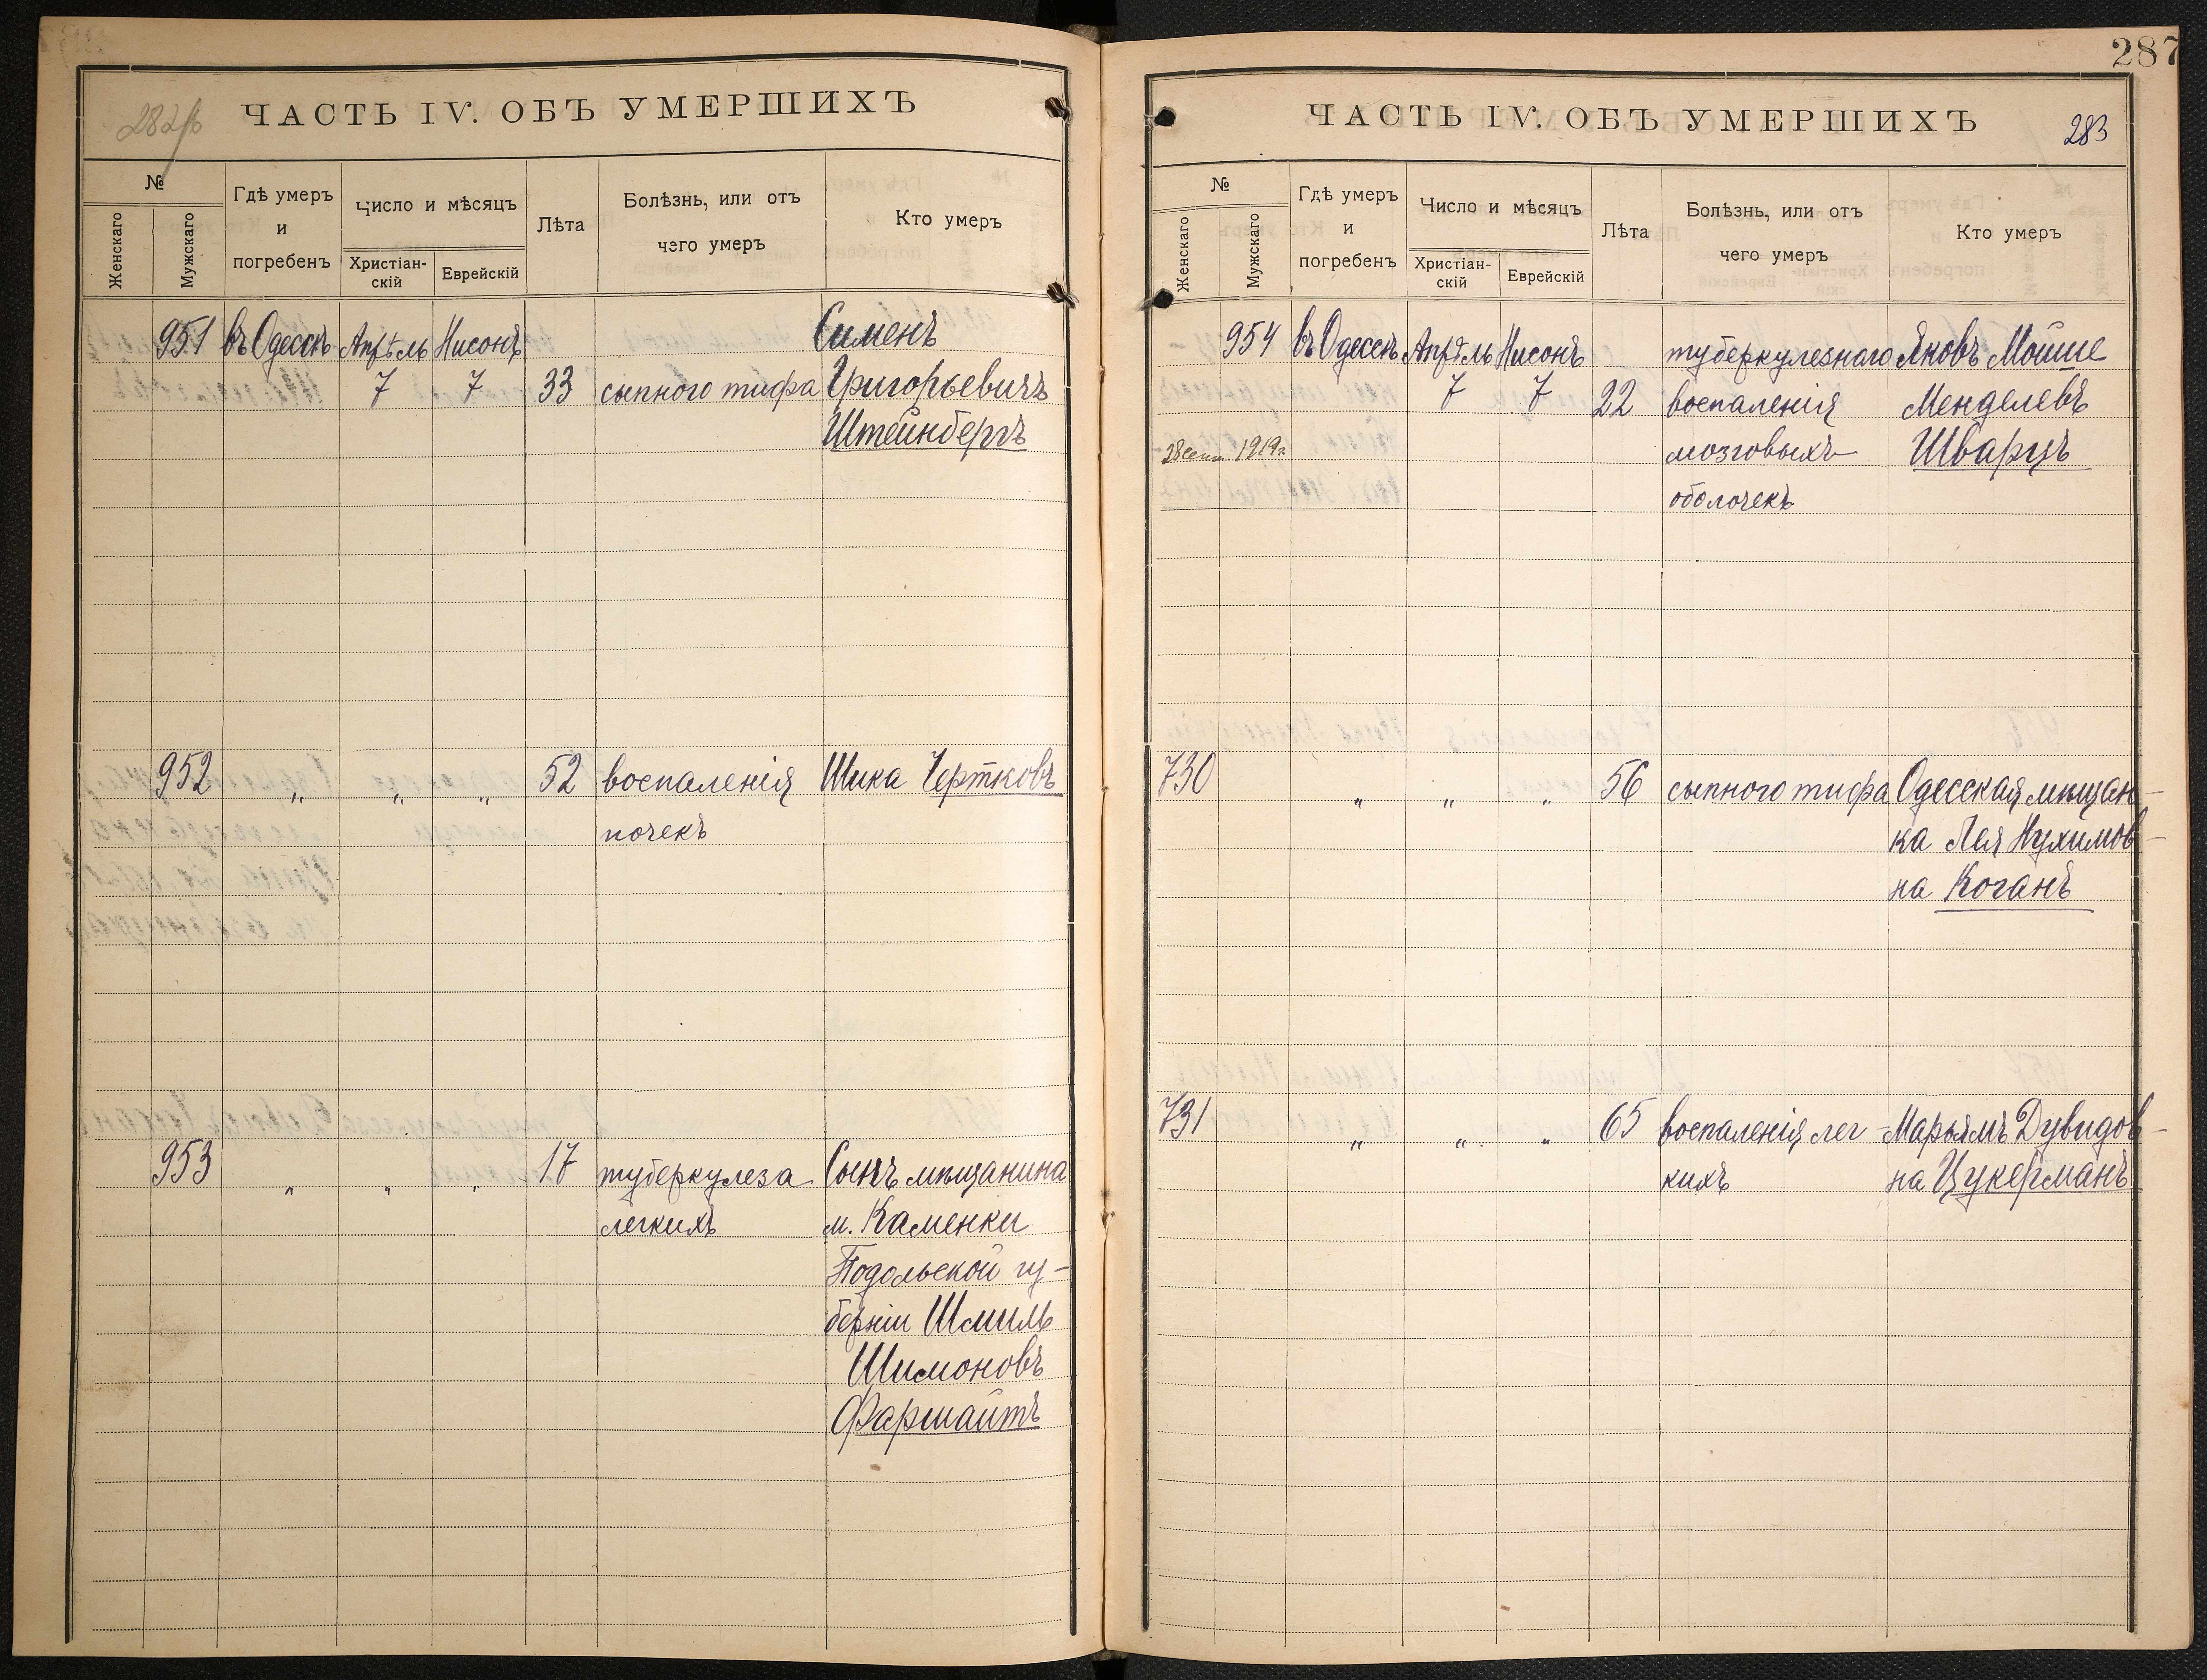 282об
ЧАСТЬ IV. ОБЪ УМЕРШИХЪ
№
Женскаго
Мужскаго
Гдѣ умеръ
и
погребенъ
Число и мѣсяцъ
Христіан-
скій
Еврейскій
Лѣта
Болѣзнь, или отъ
чего умеръ
Кто умеръ
951 въ Одессѣ Апрѣль Нисонъ Сименъ
7 7 33 сыпного тифа Григорьевичъ
Штейнбергъ
952 " " " 52 воспаленія Шика Чертковъ
почекъ
953 " " " 17 туберкулеза Сынъ мѣщанина
легкихъ м. Каменки
Подольской гу-
берніи Шмиль
Шимоновъ
Фаршайтъ
287
ЧАСТЬ IV. ОБЪ УМЕРШИХЪ
283
№
Женскаго
Мужскаго
Гдѣ умеръ
и
погребенъ
Число и мѣсяцъ
Христіан-
скій
Еврейскій
Лѣта
Болѣзнь, или отъ
чего умеръ
Кто умеръ
954 въ Одессѣ Апрѣль Нисонъ туберкулезнаго Яковъ Мойше
7 7 22 воспаленія Менделевъ
28 1919г. мозговыхъ Шварцъ
оболочекъ
730 " " " 56 сыпного тифа Одесская мѣщан-
ка Лея Нухимов-
на Коганъ
731 " " " 65 воспаленія лег- Марьямъ Дувидов-
кихъ на Цукерманъ